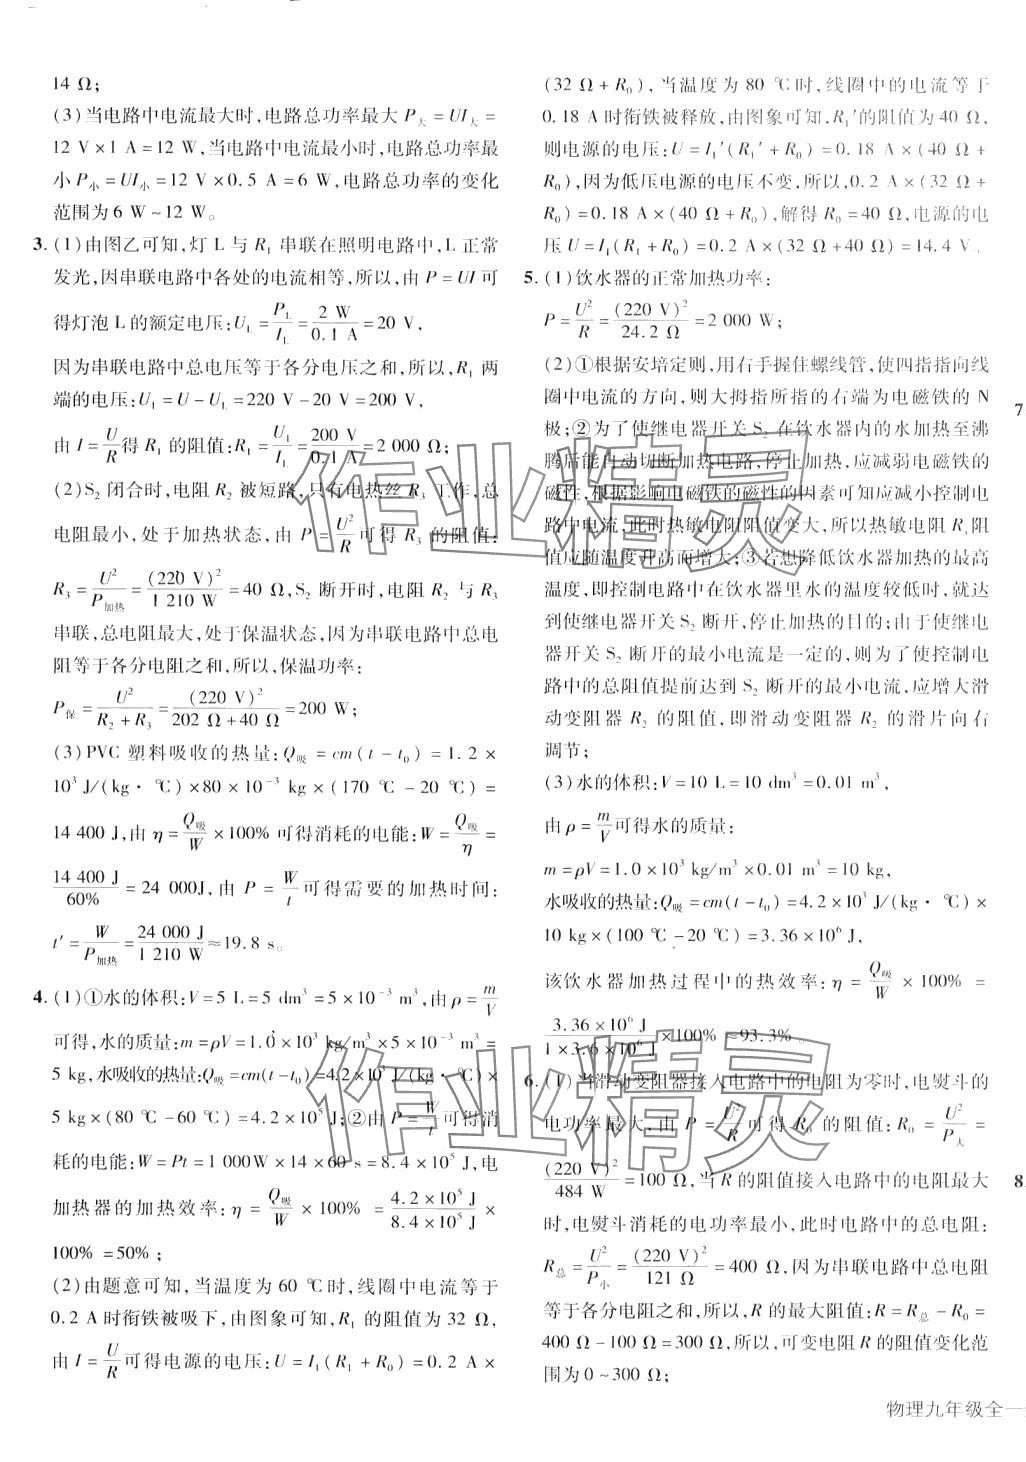 14 Ω;
(3)当电路中电流最大时,电路总功率最大 P大=UI大=
12 V×1 A=12 W,当电路中电流最小时,电路总功率最
小 P小=UI小=12 V×0.5 A=6 W,电路总功率的变化
范围为 6 W~12 W。
3. (1)由图乙可知,灯 L 与 R₁ 串联在照明电路中,L 正常
发光,因串联电路中各处的电流相等,所以,由 P=UI 可
得灯泡 L 的额定电压:U_L=P_L/I_L=2 W/0.1 A=20 V,
因为串联电路中总电压等于各分电压之和,所以,R₁ 两
端的电压:U₁=U-U_L=220 V-20 V=200 V,
由 I=U/R 得 R₁ 的阻值:R₁=U₁/I_L=200 V/0.1 A=2 000 Ω;
(2)S₂ 闭合时,电阻 R₂ 被短路,只有电热丝 R₃ 工作,总
电阻最小,处于加热状态,由 P=U²/R 可得 R₃ 的阻值:
R₃=U²/P加热=(220 V)²/1 210 W=40 Ω,S₂ 断开时,电阻 R₂ 与 R₃
串联,总电阻最大,处于保温状态,因为串联电路中总电
阻等于各分电阻之和,所以,保温功率:
P保=U²/(R₂+R₃)=(220 V)²/(202 Ω+40 Ω)=200 W;
(3)PVC 塑料吸收的热量:Q吸=cm(t-t₀)=1.2×
10³ J/(kg·℃)×80×10⁻³ kg×(170 ℃-20 ℃)=
14 400 J,由 η=Q吸/W×100%可得消耗的电能:W=Q吸/η=
14 400 J/60%=24 000J,由 P=W/t 可得需要的加热时间:
t′=W/P加热=24 000 J/1 210 W≈19.8 s。
4. (1)①水的体积:V=5 L=5 dm³=5×10⁻³ m³,由 ρ=m/V
可得,水的质量:m=ρV=1.0×10³ kg/m³×5×10⁻³ m³=
5 kg,水吸收的热量:Q吸=cm(t-t₀)=4.2×10³ J/(kg·℃)×
5 kg×(80 ℃-60 ℃)=4.2×10⁵ J;②由 P=W/t 可得消
耗的电能:W=Pt=1 000W×14×60 s=8.4×10⁵ J,电
加热器的加热效率:η=Q吸/W×100%=4.2×10⁵ J/8.4×10⁵ J×
100%=50%;
(2)由题意可知,当温度为 60 ℃时,线圈中电流等于
0.2 A 时衔铁被吸下,由图象可知,R₁ 的阻值为 32 Ω,
由 I=U/R 可得电源的电压:U=I₁(R₁+R₀)=0.2 A×
(32 Ω+R₀),当温度为 80 ℃时,线圈中的电流等于
0.18 A 时衔铁被释放,由图象可知,R₁′的阻值为 40 Ω,
则电源的电压:U=I₁′(R₁′+R₀)=0.18 A×(40 Ω+
R₀),因为低压电源的电压不变,所以,0.2 A×(32 Ω+
R₀)=0.18 A×(40 Ω+R₀),解得 R₀=40 Ω,电源的电
压 U=I₁(R₁+R₀)=0.2 A×(32 Ω+40 Ω)=14.4 V。
5. (1)饮水器的正常加热功率:
P=U²/R=(220 V)²/24.2 Ω=2 000 W;
(2)①根据安培定则,用右手握住螺线管,使四指指向线
圈中电流的方向,则大拇指所指的右端为电磁铁的 N
极;②为了使继电器开关 S₂ 在饮水器内的水加热至沸
腾后能自动切断加热电路,停止加热,应减弱电磁铁的
磁性,根据影响电磁铁的磁性的因素可知应减小控制电
路中电流,此时热敏电阻阻值变大,所以热敏电阻 R₁阻
值应随温度升高而增大;③若想降低饮水器加热的最高
温度,即控制电路中在饮水器里水的温度较低时,就达
到使继电器开关 S₂ 断开,停止加热的目的;由于使继电
器开关 S₂ 断开的最小电流是一定的,则为了使控制电
路中的总阻值提前达到 S₂ 断开的最小电流,应增大滑
动变阻器 R₂ 的阻值,即滑动变阻器 R₂ 的滑片向右
调节;
(3)水的体积:V=10 L=10 dm³=0.01 m³,
由 ρ=m/V 可得水的质量:
m=ρV=1.0×10³ kg/m³×0.01 m³=10 kg,
水吸收的热量:Q吸=cm(t-t₀)=4.2×10³ J/(kg·℃)×
10 kg×(100 ℃-20 ℃)=3.36×10⁶ J,
该饮水器加热过程中的热效率:η=Q吸/W×100%=
3.36×10⁶ J/1×3.6×10⁶ J×100%≈93.3%。
6. (1)当滑动变阻器接入电路中的电阻为零时,电熨斗的
电功率最大,由 P=U²/R 可得 R₀ 的阻值:R₀=U²/P大=
(220 V)²/484 W=100 Ω,当 R 的阻值接入电路中的电阻最大
时,电熨斗消耗的电功率最小,此时电路中的总电阻:
R总=U²/P小=(220 V)²/121 Ω=400 Ω,因为串联电路中总电阻
等于各分电阻之和,所以,R 的最大阻值:R=R总-R₀=
400 Ω-100 Ω=300 Ω,所以,可变电阻 R 的阻值变化范
围为 0~300 Ω;
7
8
物理九年级全一
作业精灵
作业精灵